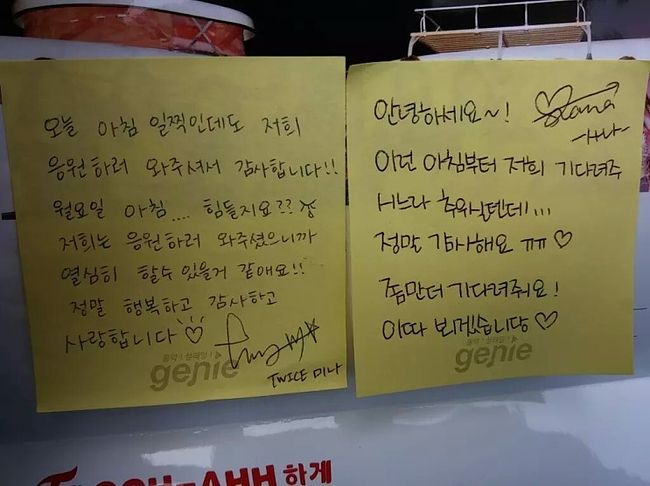 오늘 아침 일찍인데도 저희
응원하러 와주셔서 감사합니다!!
월요일 아침.... 힘들지요??
저희는 응원하러 와주셨으니까
열심히 할수 있을거 같애요!!
정말 행복하고 감사하고
사랑합니다♡
genie
TWICE 미나
안녕하세요~!
Hana
-하나-
이런 아침부터 저희 기다려주
시느라 추워실텐데!...
정말 감사해요 ㅠㅠ ♡
쫌만더 기다려줘요!
이따 뵈겠습니당 ♡
genie
OOH-AHH 하게